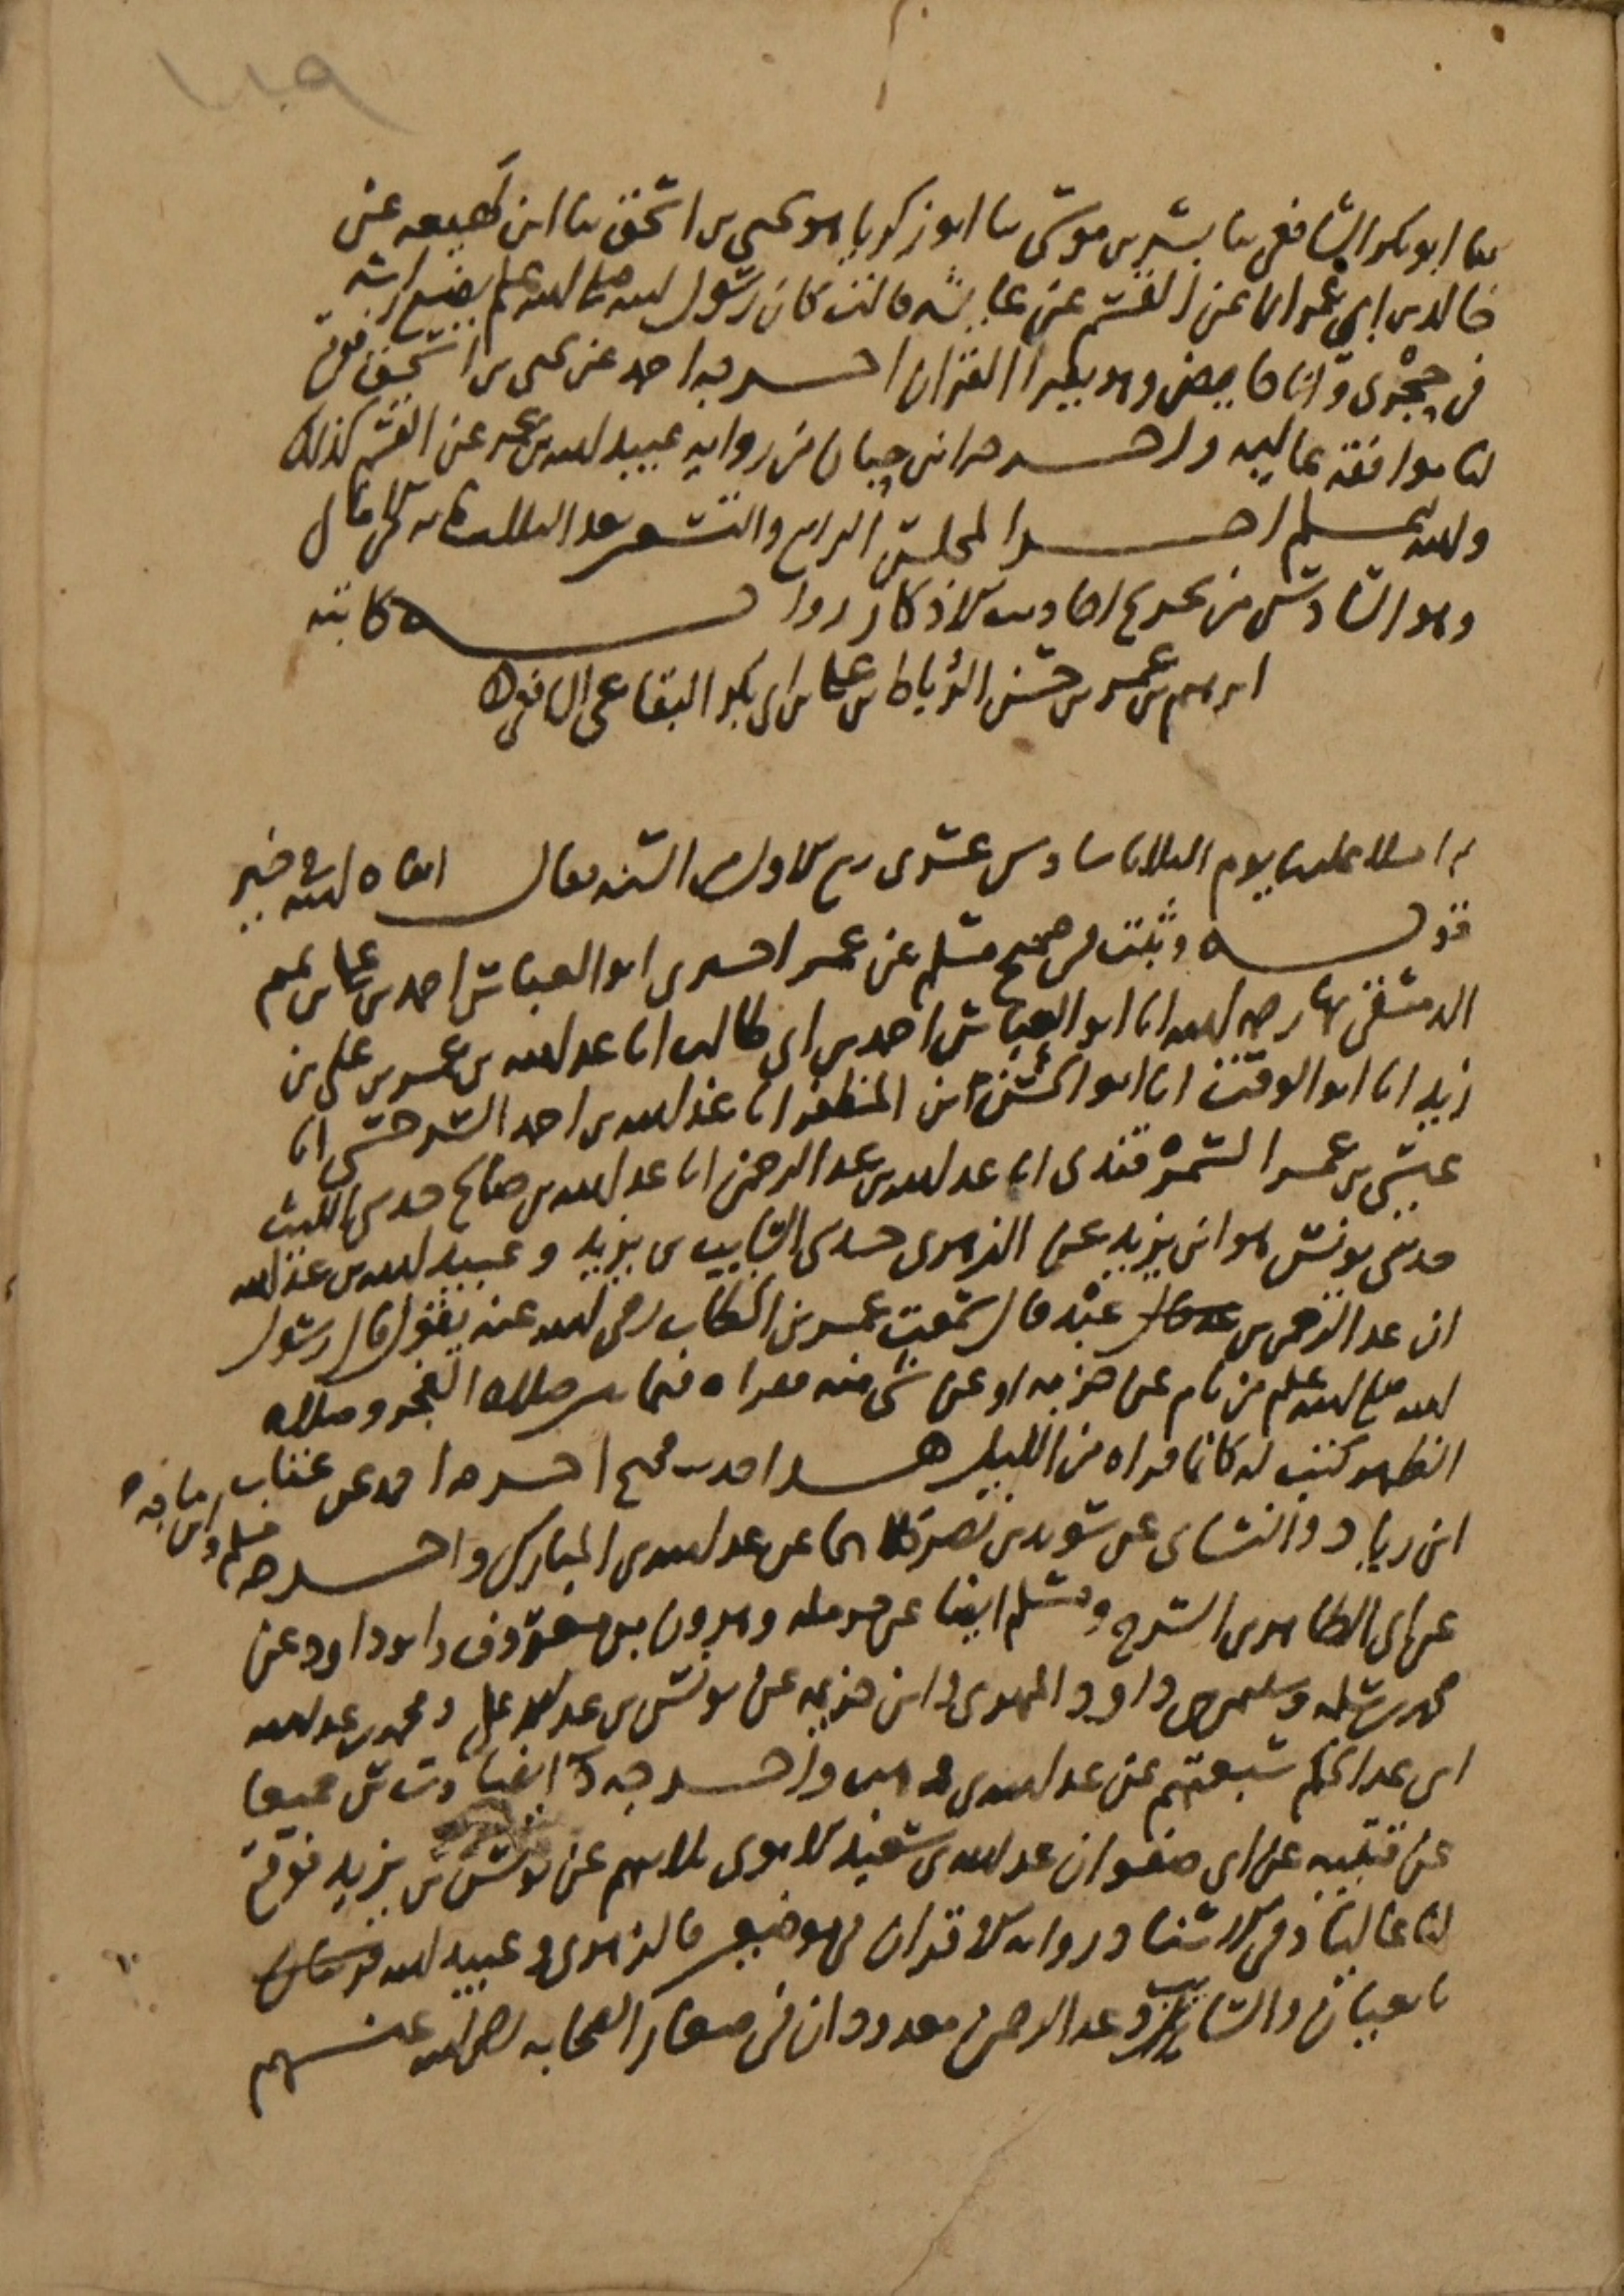 ١٨٩
ثنا ابو بكر الشافعي ثنا بشر بن موسى ثنا ابو زكريا هو يحيى بن اسحق ثنا ابن لهيعه عن
خالد بن ابي عمران عن القسم عن عايشه قالت كان رسول الله صلى الله عليه وسلم يضع راسه
في حجرى وانا حايض وهو يقرا القران اخرجه احمد عن يحيى بن اسحق فوقع
لنا موافقة عاليه واخرجه ابن حبان من روايه عبيد الله بن عمر عن القسم كذلك
والله اعلم اخر المجلس الرابع والتسعين بعد الثلثمايه من الامالي
وهو السادس من تخريج احاديث الاذكار رواية كاتبه
ابرهيم بن عمر بن حسن الرباط بن علي بن ابي بكر البقاعي الشافعي
ثم املا علينا يوم الثلاثا سادس عشرى ربيع الاول من السنه فقال ابقاه الله في خير
قوله وثبت في صحيح مسلم عن عمر اخبرني ابو العباس احمد بن علي بن تميم
الدمشقي بها رحمه الله انا ابو العباس احمد بن ابي طالب انا عبد الله بن عمر بن علي بن
زيد انا ابو الوقت انا ابو الحسن ابن المظفر انا عبد الله بن احمد السرخسي انا
عيسى بن عمر السمرقندى انا عبد الله بن عبد الرحمن انا عبد الله بن صالح حدثني الليث
حدثني يونس هو ابن يزيد عن الزهرى حدثني السايب بن يزيد وعبيد الله بن عبد الله
ان عبد الرحمن بن عبد قال سمعت عمر بن الخطاب رضي الله عنه يقول قال رسول
الله صلى الله عليه وسلم من نام عن حزبه او عن شي منه فقراه فيما بين صلاه الفجر وصلاه
الظهر كتب له كانما قراه من الليل هذا حديث صحيح اخرجه احمد عن عتاب
ابن زياد والنسائي عن سويد بن نصر كلاهما عن عبد الله بن المبارك واخرجه مسلم وابن ماجه
عن ابي الطاهر بن السرح ومسلم ايضا عن حرمله وهرون بن معروف وابو داود عن
محمد بن سلمه وسليمن بن داود المهرى وابن خزيمه عن يونس بن عبد الاعلى ومحمد بن عبد الله
ابن عبد الحكم سبعتهم عن عبد الله بن وهب واخرجه ايضا د ت س جميعا
عن قتيبه عن ابي صفوان عبد الله بن سعيد الاموى ثلاثتهم عن يونس بن يزيد فوقع
لنا عاليا وفي الاسناد روايه الاقران في موضعين فالزهرى وعبيد الله
تابعيان والسايب وعبد الرحمن معدودان في صغار الصحابه رضي الله عنهم